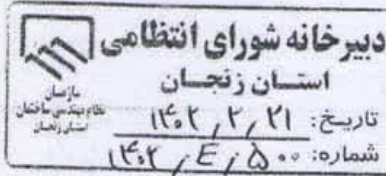 دبیرخانه شورای انتظامی
استان زنجان
سازمان
نظام مهندسی ساختمان
استان زنجان
تاریخ: ۱۴۰۲/۲/۲۱
شماره: ۱۴۰۲/E/۵۰۰